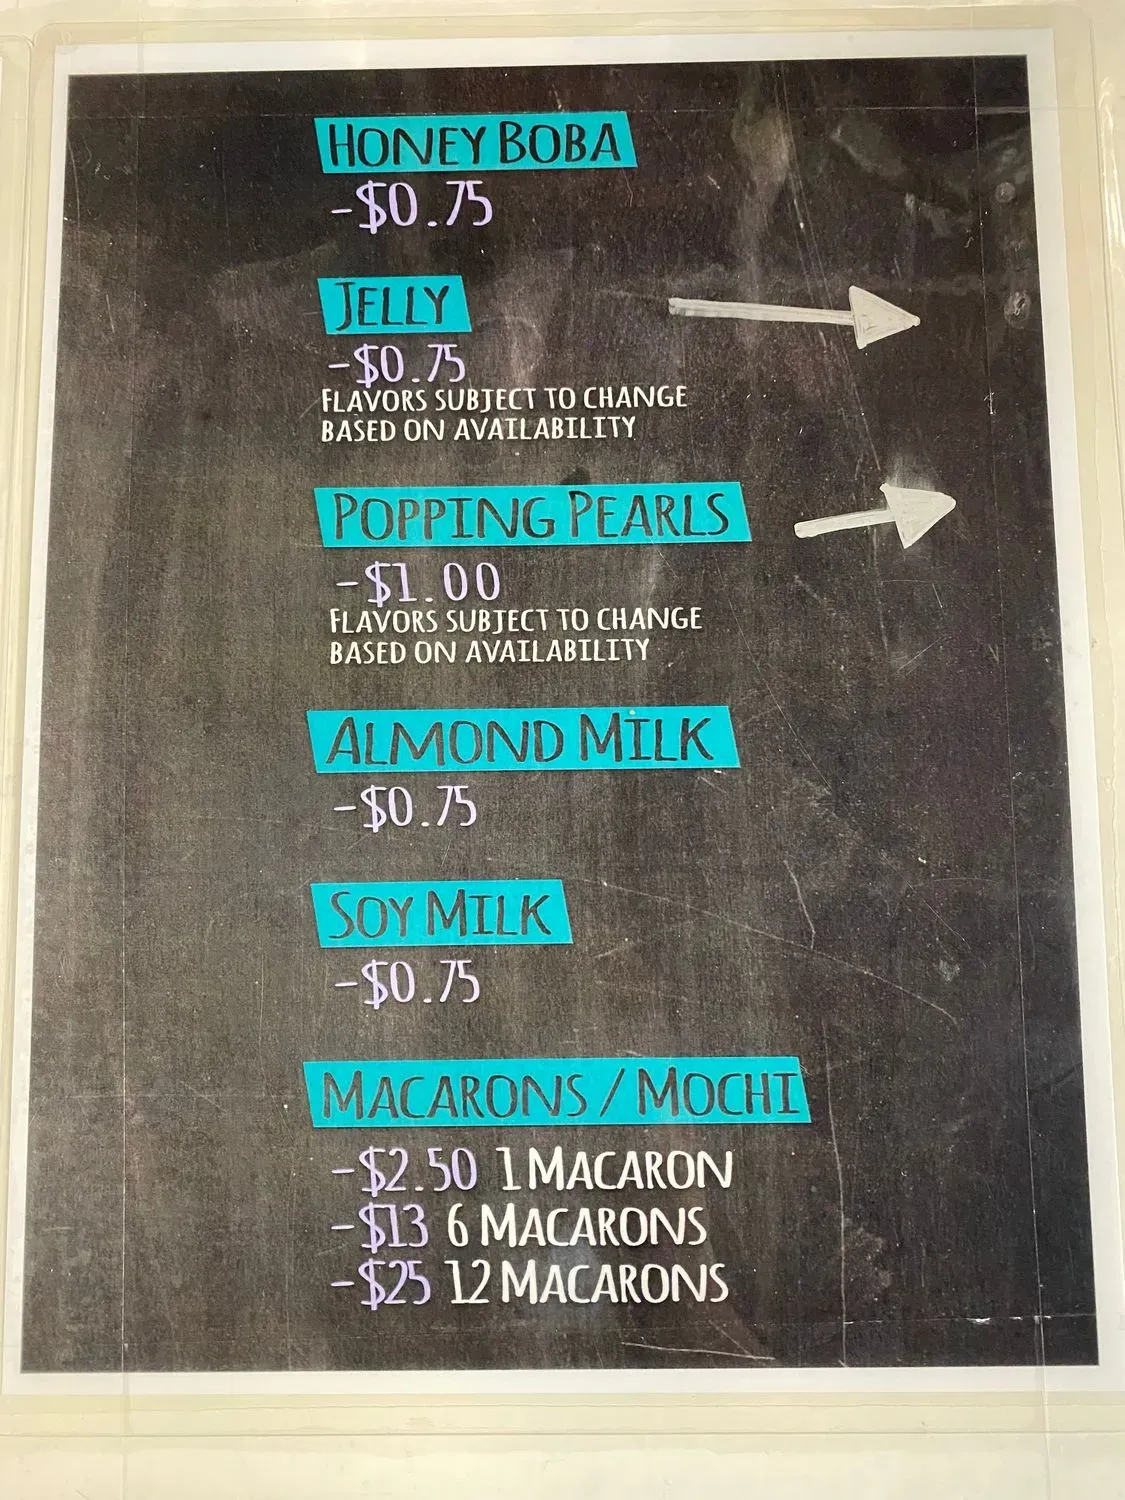 HONEY BOBA
-$0.75
JELLY
-$0.75
FLAVORS SUBJECT TO CHANGE
BASED ON AVAILABILITY
POPPING PEARLS
-$1.00
FLAVORS SUBJECT TO CHANGE
BASED ON AVAILABILITY
ALMOND MILK
-$0.75
SOY MILK
-$0.75
MACARONS / MOCHI
-$2.50 1 MACARON
-$13 6 MACARONS
-$25 12 MACARONS